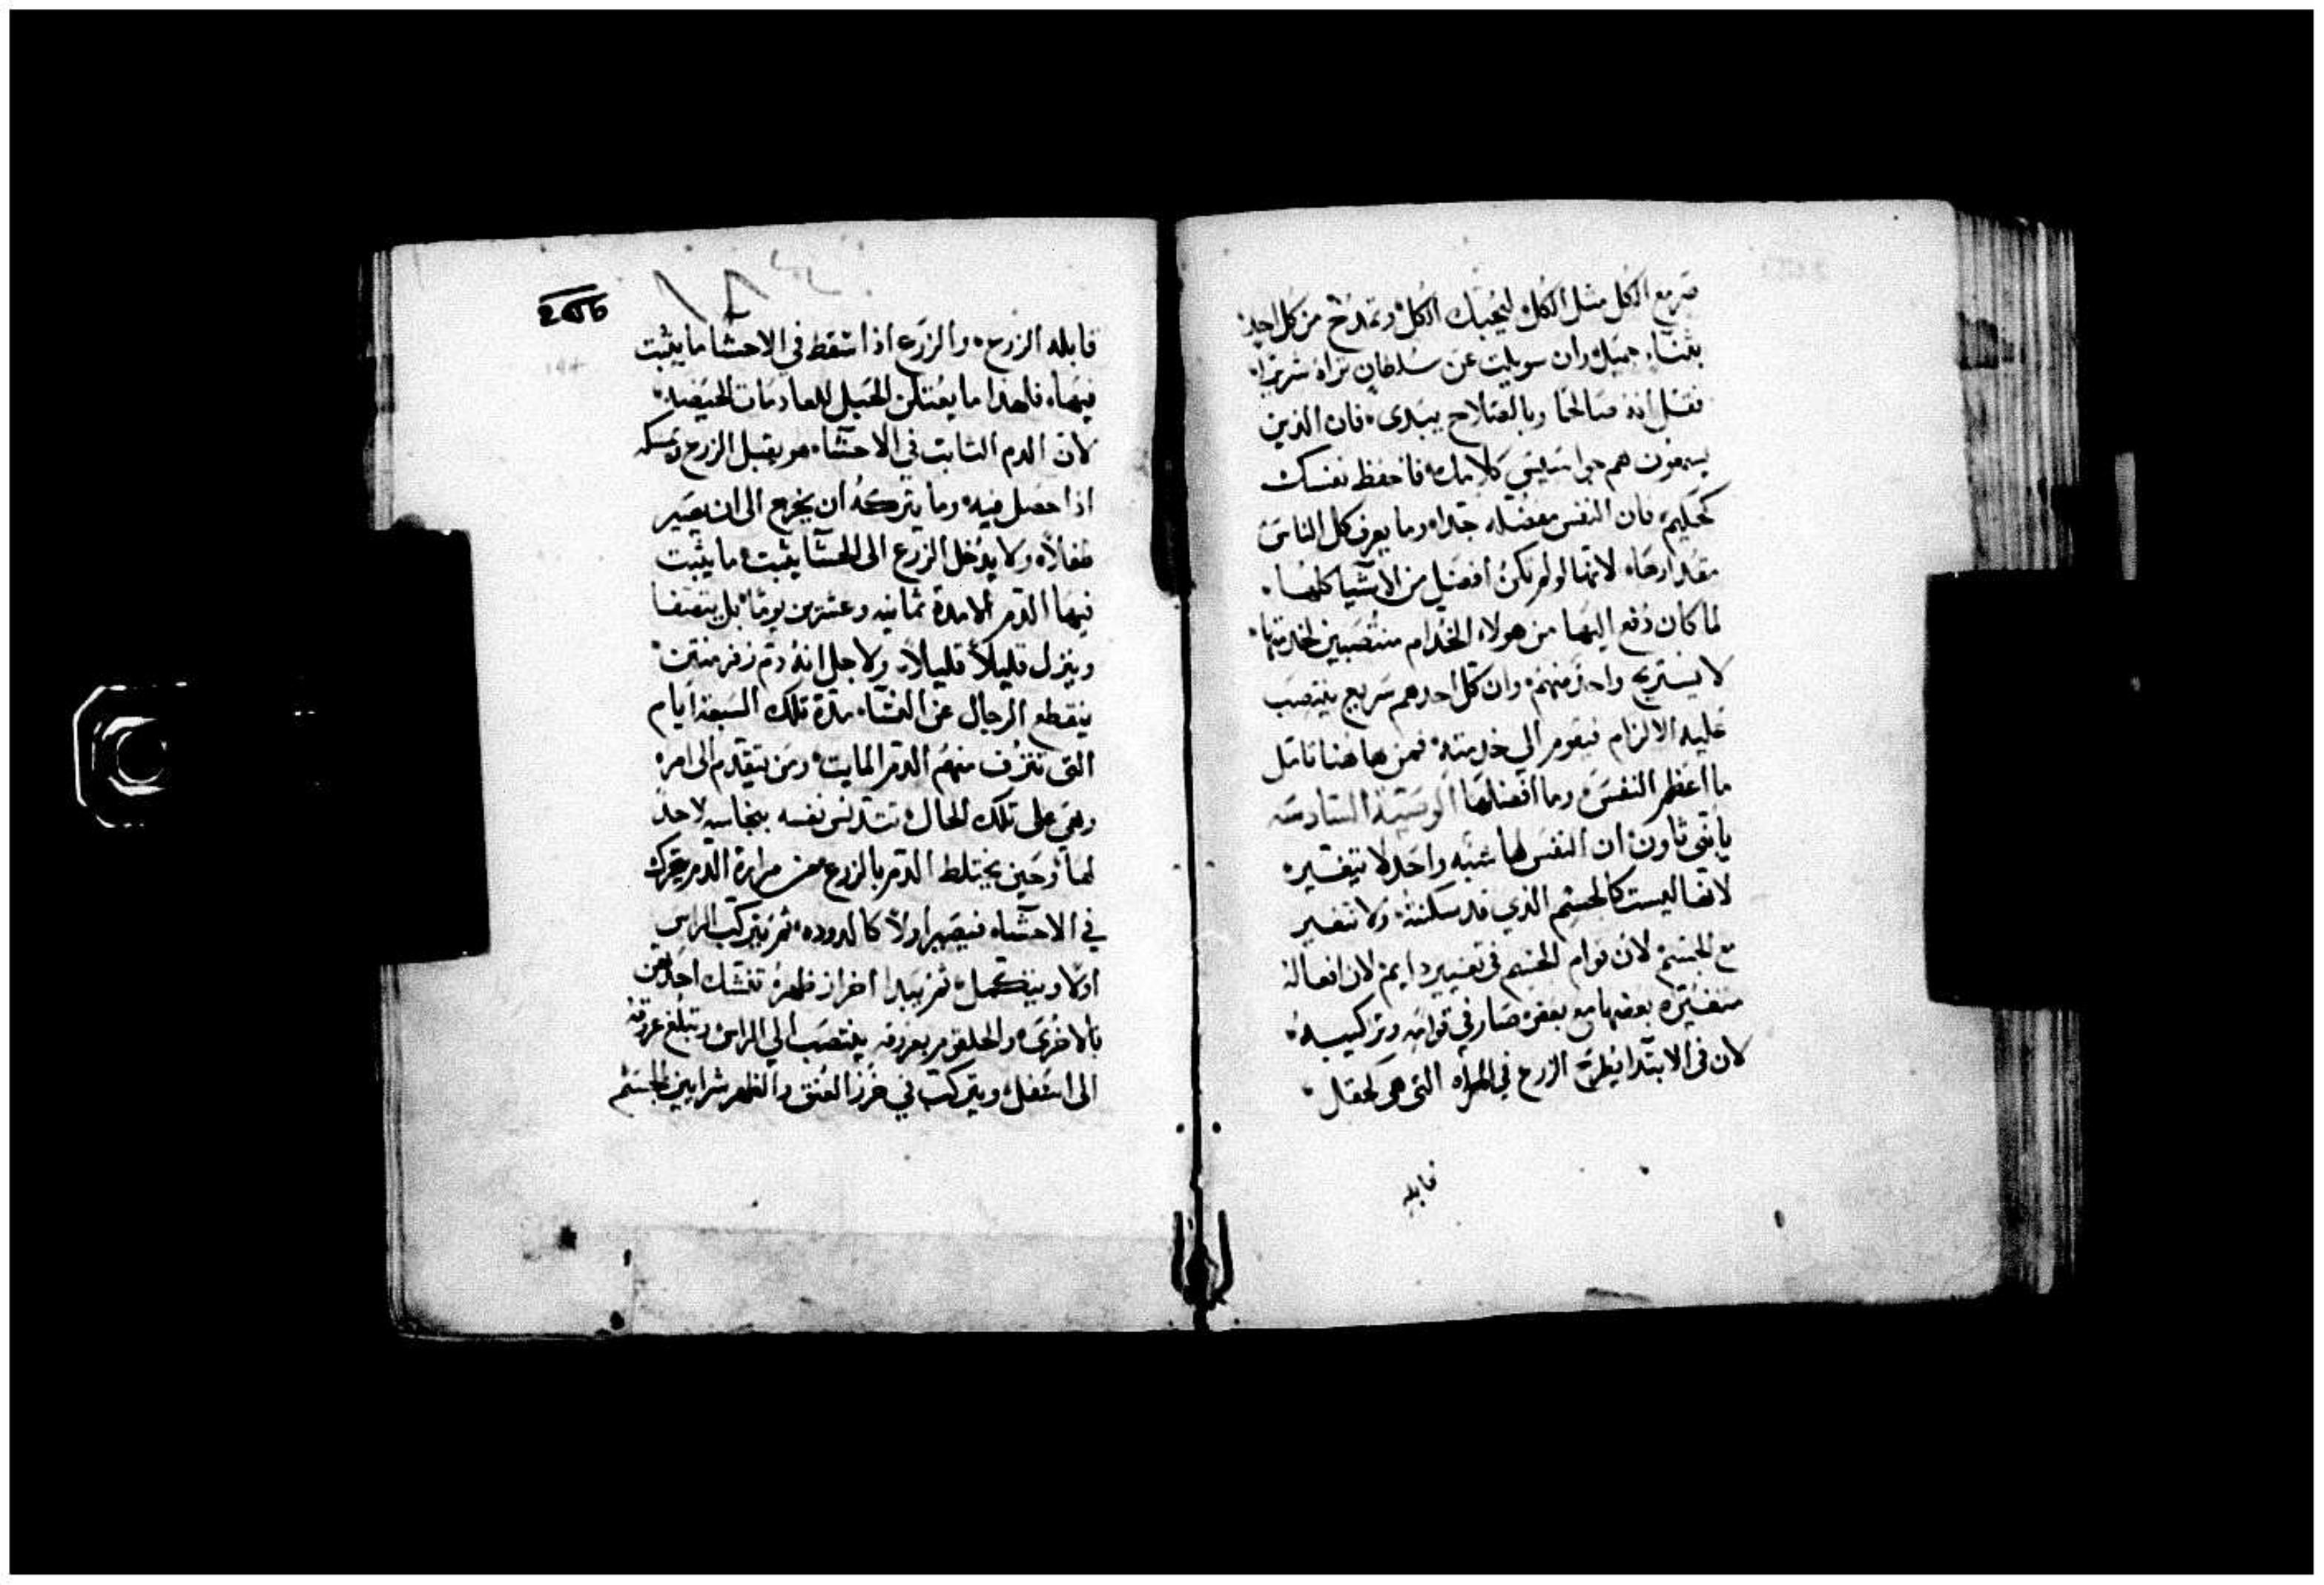 صر مع الكل مثل الكل ليحبك الكل وتمدح من كل احد
بثناء جميل وان سويلت عن سلطان تراه شريرا
فقل انه صالحا وبالصلاح يبتدى فان الذين
يسمعون هم كلامك فاحفظ نفسك
كحكيم فان النفس مفضله جدا وما يعرف كل الناس
مقدارها لانها لو لم تكن افضل من الاشيا كلها
لما كان دفع اليها من هولاء الخدام منتصبين لخدمتها
لا يستريح واحد منهم وان كل احدهم سريع ينتصب
عليه الالزام فيقوم الي خدمته فمن هاهنا تامل
ما اعظم النفس وما افضلها الوصية السادسه
يا بني ثاون ان النفس لها شبه واحد لا يتغير
لانها ليست كالجسم الذي قد سكنته ولا تتغير
مع الجسم لان قوام الجسم في تغيير دايم لان افعاله
متغيره بعضها مع بعض صار في قوامه وتركيبه
لان في الابتدا يطرح الزرع في المراه التي هي كحقل
قابله
قابله الزرع والزرع اذا سقط في الاحشا ما يثبت
فيها فلهذا ما يمكن الحبل للعادمات الحيضه
لان الدم الثابت في الاحشاء هو يقبل الزرع ويمسكه
اذا حصل فيه وما يتركه ان يخرج الى ان يصير
طفلا ولا يدخل الزرع الى الحشا يثبت ما يثبت
فيها الدم الا مدة ثمانيه وعشرين يوما بل يتصفا
وينزل قليلا قليلا ولاجل انه دم زفر منتن
ينقطع الرجال عن النساء مدة تلك السبعة ايام
التي تنزف منهم الدم المايت ومن يتقدم الى امره
وهي على تلك الحال تتدنس نفسه بنجاسه لاحد
لها وحين يختلط الدم بالزرع من مرارة الدم يتحرك
في الاحشاء فيصير اولا كالدوده ثم يتركب الراس
اولا ويتكمل ثم يبدا اخراز ظهره تمسك احداهن
بالاخرى والحلقوم بعروقه ينتصب الي الراس وتبلغ عروقه
الى اسفل ويتركب في خرز العنق والظهر شرايين الجسم